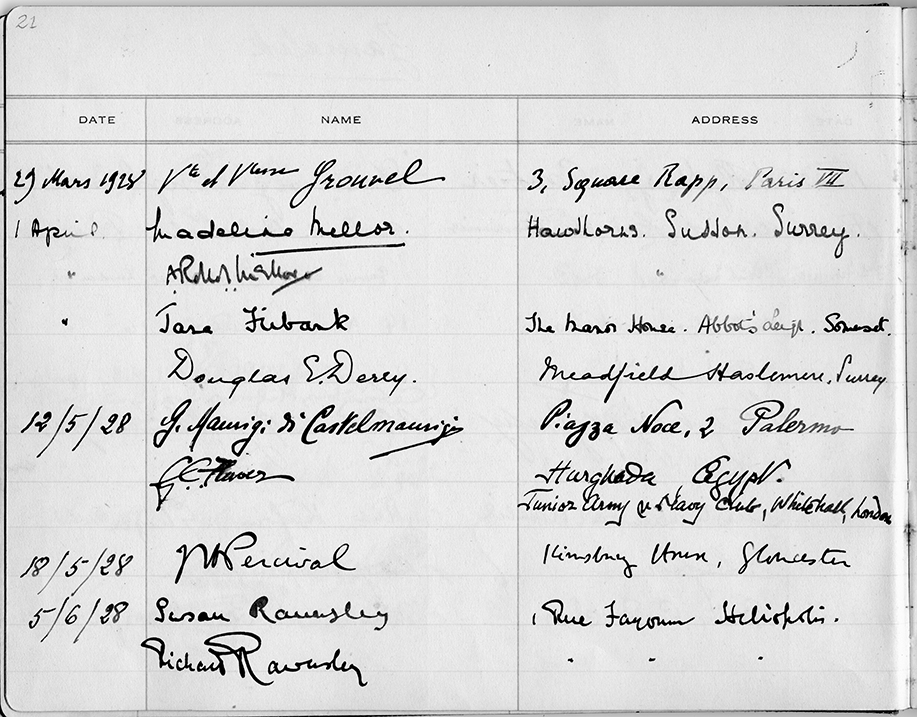 21
DATE NAME ADDRESS
29 Mars 1928 Vte et Vtesse Grouvel 3, Square Rapp, Paris VII
1 April. Madeline Mellor. Hawthorns. Sutton. Surrey.
" "
" Jane Fubank The Manor House. Abbot's Leigh. Somerset.
Douglas E. Derry. Meadfield Haslemere, Surrey
12/5/28 G. Maurigi di Castelmaurigi Piazza Noce, 2 Palermo
Hurghada Egypt.
Junior Army & Navy Club, Whitehall, London
18/5/28 Percival Kimsbury House, Gloucester
5/6/28 Susan Rawnsley 1 Rue Fayoum Heliopolis.
Richard Rawnsley " " "